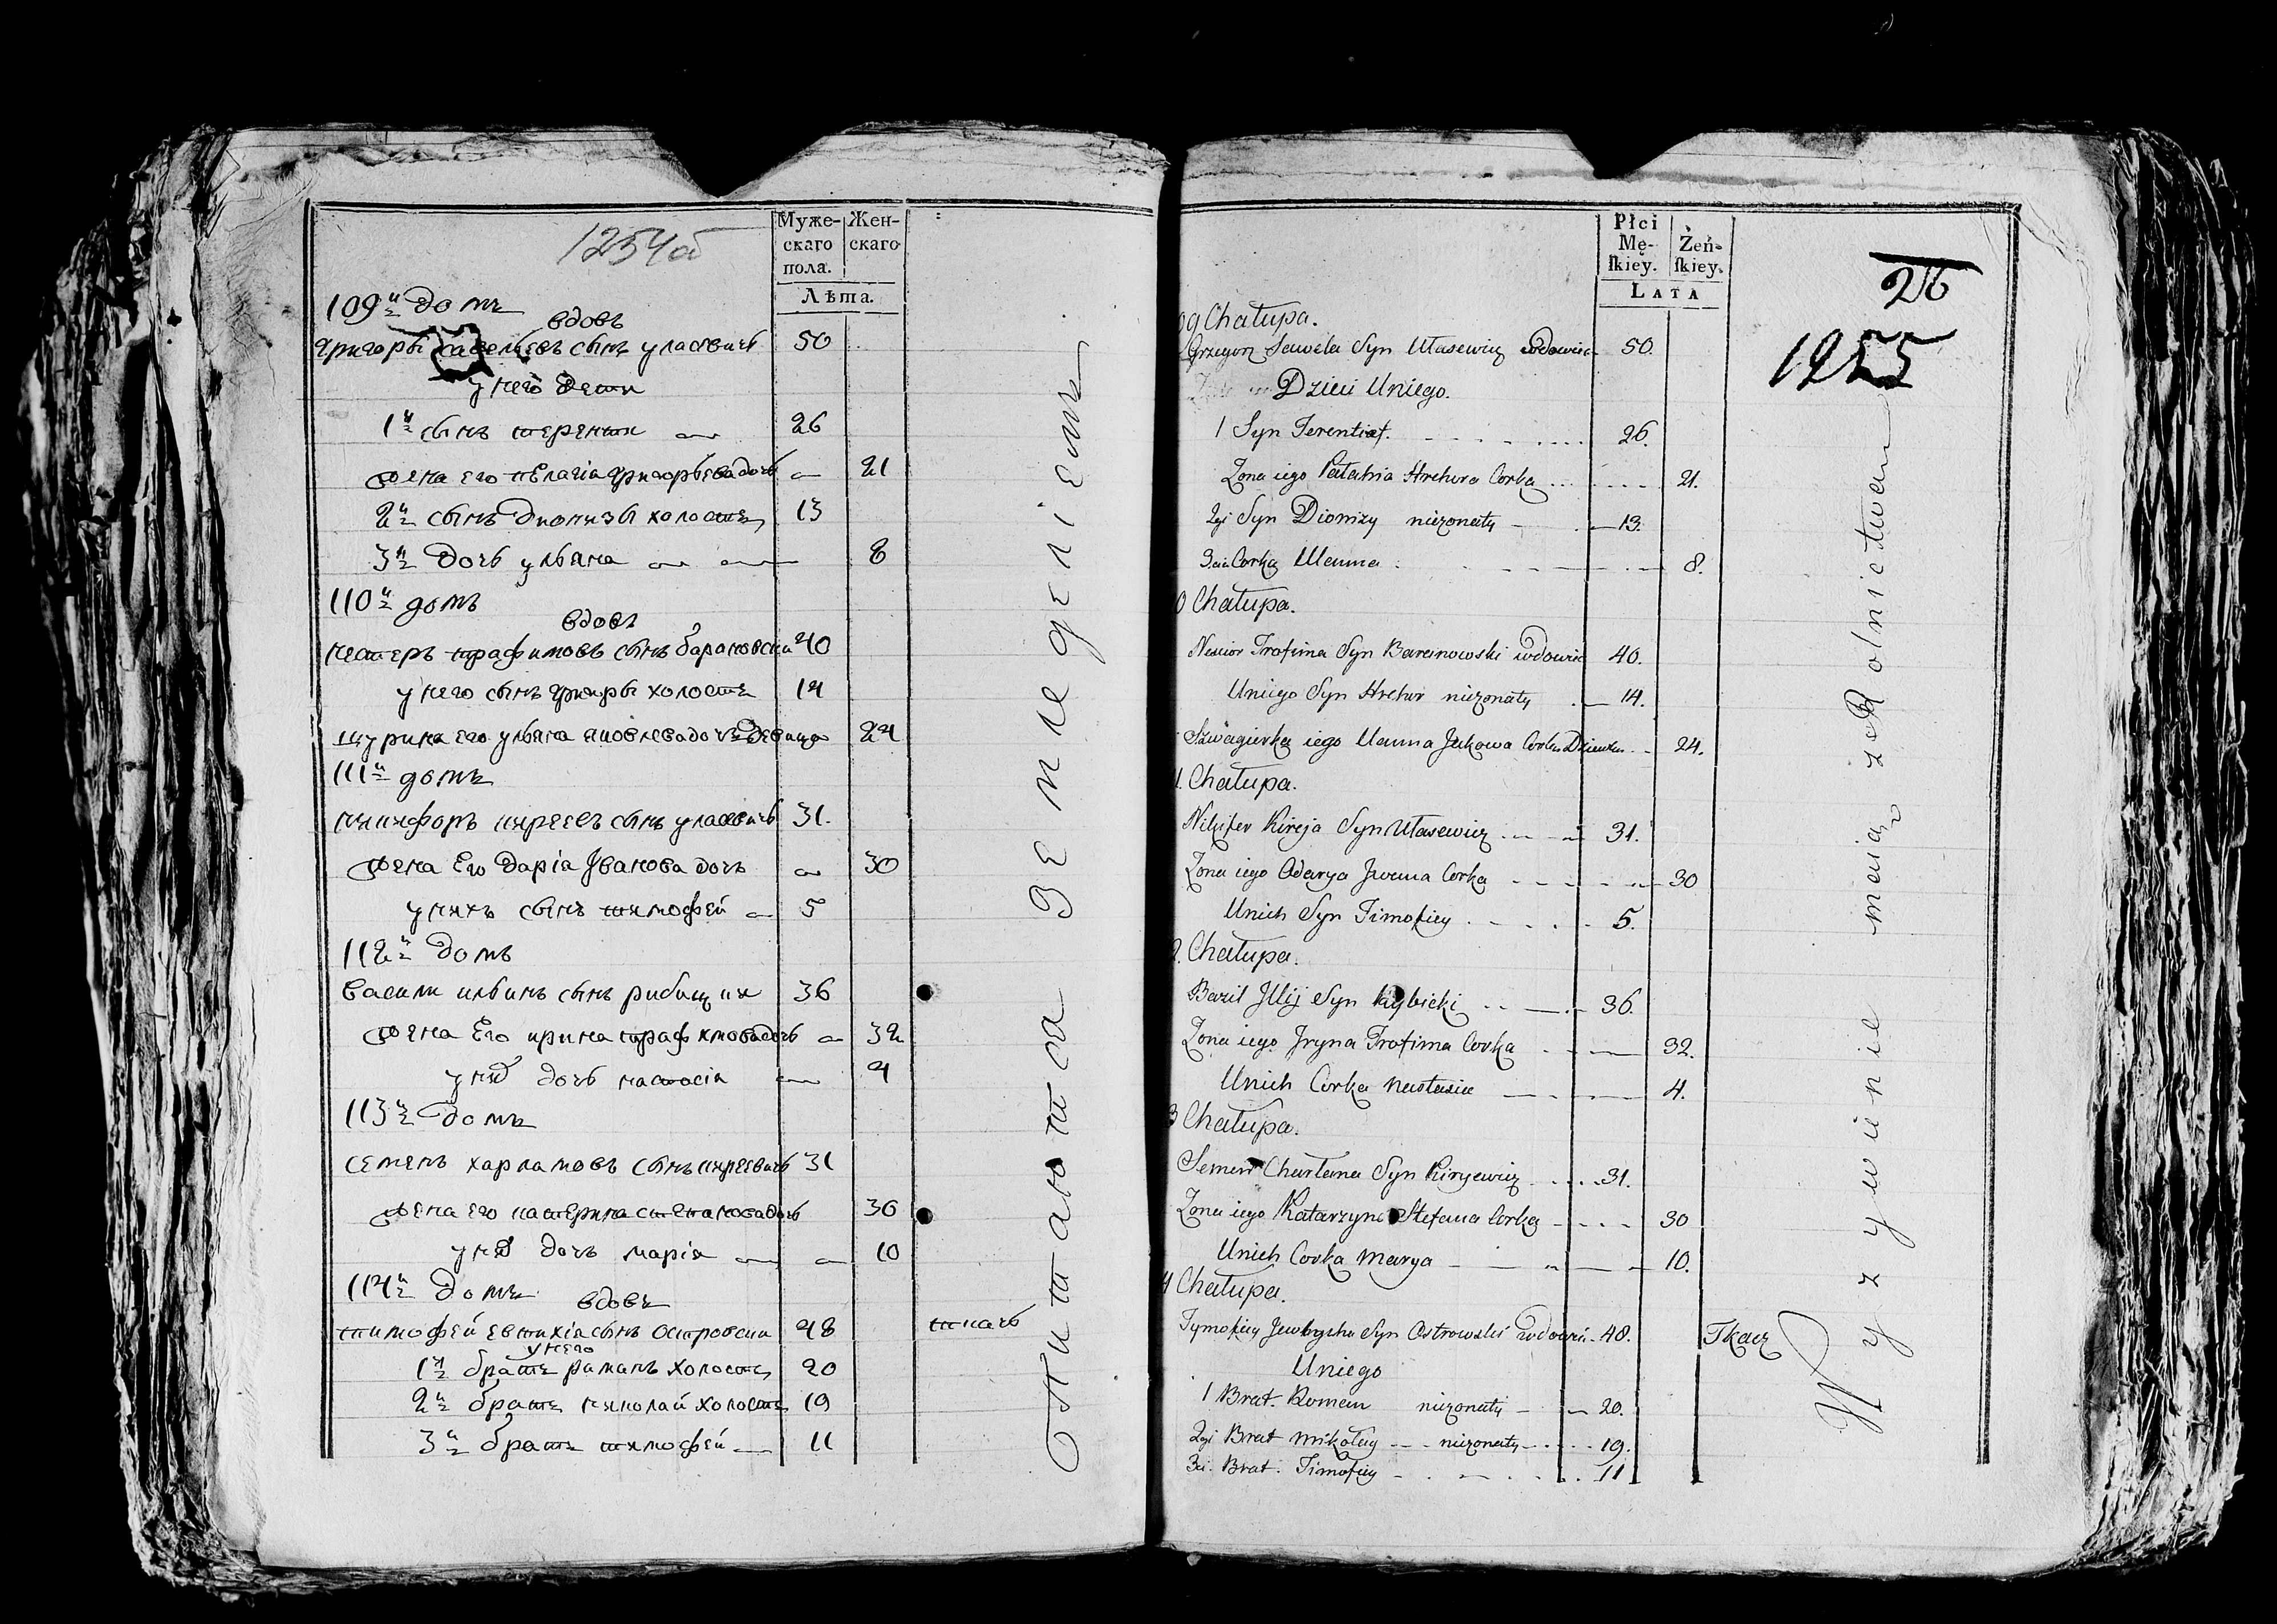 1254об
Муже-
скаго
пола.
Жен-
скаго
Лѣта.
109й домъ
вдовъ
григоры савельевъ сынъ уласевичь 50
у него дети
1й сынъ терентіи 26
жена его пелагія григорьева дочь 21
2й сынъ дионизы холостъ 13
3я дочь ульяна 8
110й домъ
вдовъ
нестеръ трафимовъ сынъ барановски 40
у него сынъ григоры холостъ 14
шурина его ульяна яковлева дочь девица 24
111й домъ
никифоръ киреевъ сынъ уласевичь 31.
жена Его дарія Иванова дочь 30
у нихъ сынъ тимофей 5
112й домъ
васили ильинъ сынъ рибицки 36
жена Его ирина трафимова дочь 32
у них дочь настасія 4
113й домъ
семенъ харламовъ сынъ киреевичь 31
жена его катерина степанова дочь 30
у них дочь марія 10
114й домъ
вдовъ
тимофей евтихія сынъ островски 48 ткачь
у него
1й братъ раманъ холостъ 20
2й братъ николай холостъ 19
3й братъ тимофей 11
питаются земледеліемъ
Płci
Mę-
ſkiey.
Żeń-
ſkiey.
LATA
26
1255
09 Chałupa.
Grzegorz Sawela Syn Ułasewicz wdowiec 50.
Dzieci Uniego.
1 Syn Terentiej. 26.
Zona iego Pałahia Hrehora Corka 21.
2gi Syn Dionizy niezonaty 13.
3cia Corka Ulanna 8.
0 Chatupa.
Nestor Trofima Syn Baranowski wdowiec 40.
Uniego Syn Hrehor niezonaty 14.
Szwagierka iego Ulanna Jakowa Corka Dziewka 24.
1. Chatupa.
Nikifor Kireja Syn Ułasewicz 31.
Zona iego Odarya Jwana Corka 30
Unich Syn Timofiey 5.
2. Chatupa.
Bazil Jllij Syn Rybicki 36.
Zona iego Jryna Trofima Corka 32.
Unich Corka Nastasia 4.
3 Chatupa.
Semen Charłana Syn Kiryewicz 31.
Zona iego Katarzyna Stefana Corka 30
Unich Corka Marya 10.
4 Chatupa.
Tymofiey Jewtycha Syn Ostrowski wdowiec 48. Tkacz
Uniego
1 Brat. Roman niezonaty 20.
2gi Brat Mikołay niezonaty 19.
3ci. Brat. Timofiey 11
Wyzywienie maią z Rolnictwa